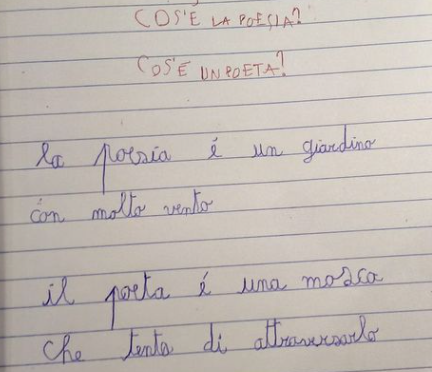 COS'É LA POESIA?
COS'É UN POETA?
la poesia é un giardino
con molto vento
il poeta é una mosca
che tenta di attraversarlo